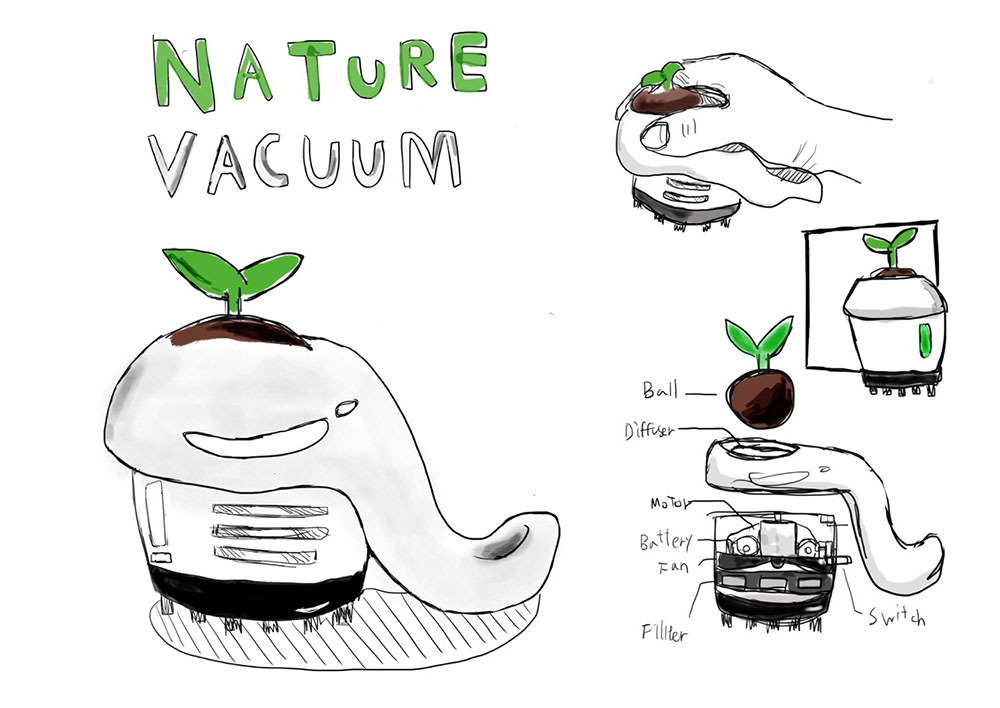 NATURE
VACUUM
Ball
Diffuser
Motor
Battery
Fan
Fillter
Switch